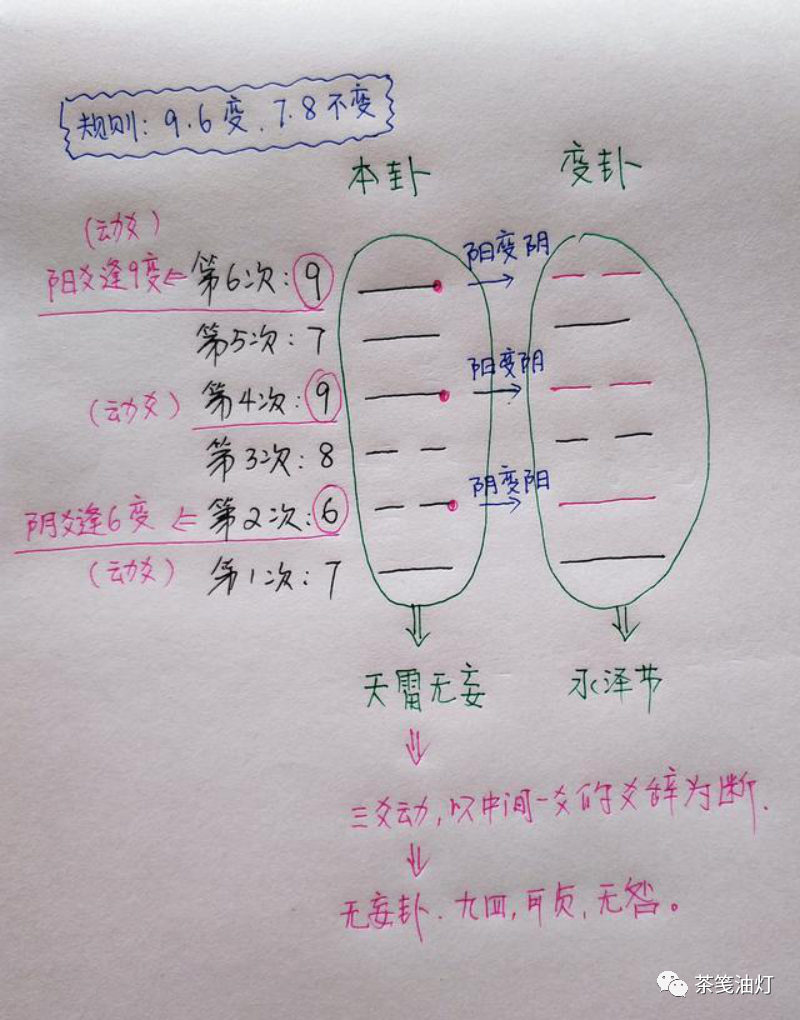 规则: 9.6变、7.8不变
本卦 变卦
(动爻)
阳爻逢9变←第6次:9 阳变阴
第5次:7
(动爻) 第4次:9 阳变阴
第3次:8
阴爻逢6变 ←第2次:6 阴变阳
(动爻) 第1次:7
天雷无妄 水泽节
三爻动,以中间一爻的爻辞为断.
无妄卦.九四,可贞,无咎。
茶笺油灯